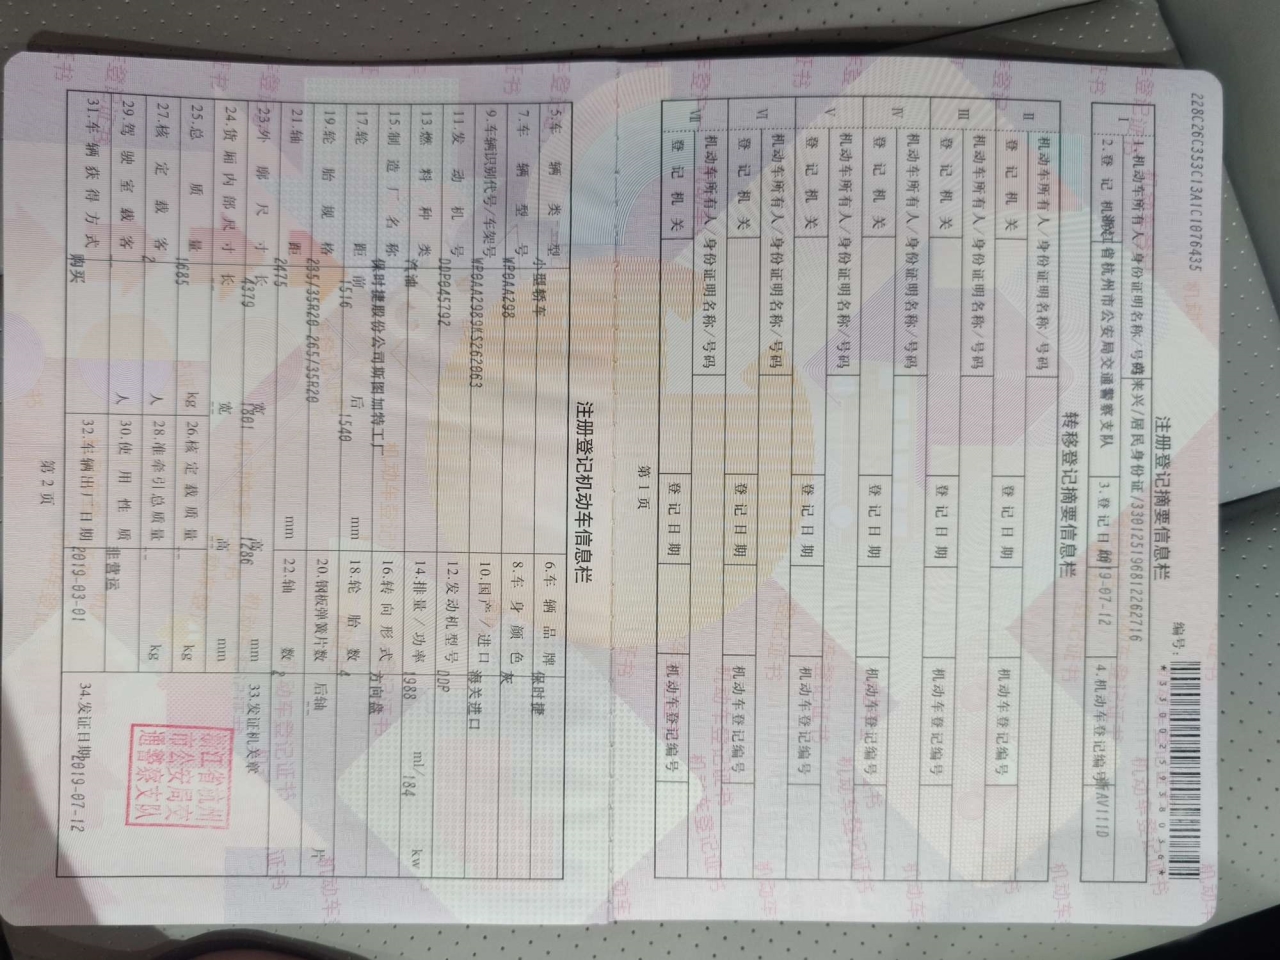 228C26C353C13A1C1076435
编号:
*330025938036*
注册登记摘要信息栏
I
1.机动车所有人/身份证明名称/号码
来兴/居民身份证/330125196812262716
2.登记机关
浙江省杭州市公安局交通警察支队
3.登记日期
2019-07-12
4.机动车登记编号
浙AV111D
转移登记摘要信息栏
II
机动车所有人/身份证明名称/号码
登记机关
登记日期
机动车登记编号
III
机动车所有人/身份证明名称/号码
登记机关
登记日期
机动车登记编号
IV
机动车所有人/身份证明名称/号码
登记机关
登记日期
机动车登记编号
V
机动车所有人/身份证明名称/号码
登记机关
登记日期
机动车登记编号
VI
机动车所有人/身份证明名称/号码
登记机关
登记日期
机动车登记编号
VII
机动车所有人/身份证明名称/号码
登记机关
登记日期
机动车登记编号
第1页
注册登记机动车信息栏
5.车辆类型 小型轿车 6.车辆品牌 保时捷
7.车辆型号 WP0AA298 8.车身颜色 灰
9.车辆识别代号/车架号 WP0AA2989KS262063 10.国产/进口 海关进口
11.发动机号 DDP045792 12.发动机型号 DDP
13.燃料种类 汽油 14.排量/功率 1988 ml/ 184 kw
15.制造厂名称 保时捷股份公司斯图加特工厂 16.转向形式 方向盘
17.轮距 前 1516 后 1540 mm 18.轮胎数 4
19.轮胎规格 235/35R20-265/35R20 20.钢板弹簧片数 后轴 -- 片
21.轴距 2475 mm 22.轴数 2
23.外廓尺寸 长 4379 宽 1801 高 1286 mm 33.发证机关章
24.货厢内部尺寸 长 -- 宽 -- 高 -- mm
25.总质量 1685 kg 26.核定载质量 -- kg
27.核定载客 2 人 28.准牵引总质量 -- kg
29.驾驶室载客 -- 人 30.使用性质 非营运
31.车辆获得方式 购买 32.车辆出厂日期 2019-03-01 34.发证日期 2019-07-12
浙江省杭州
市公安局交
通警察支队
第2页